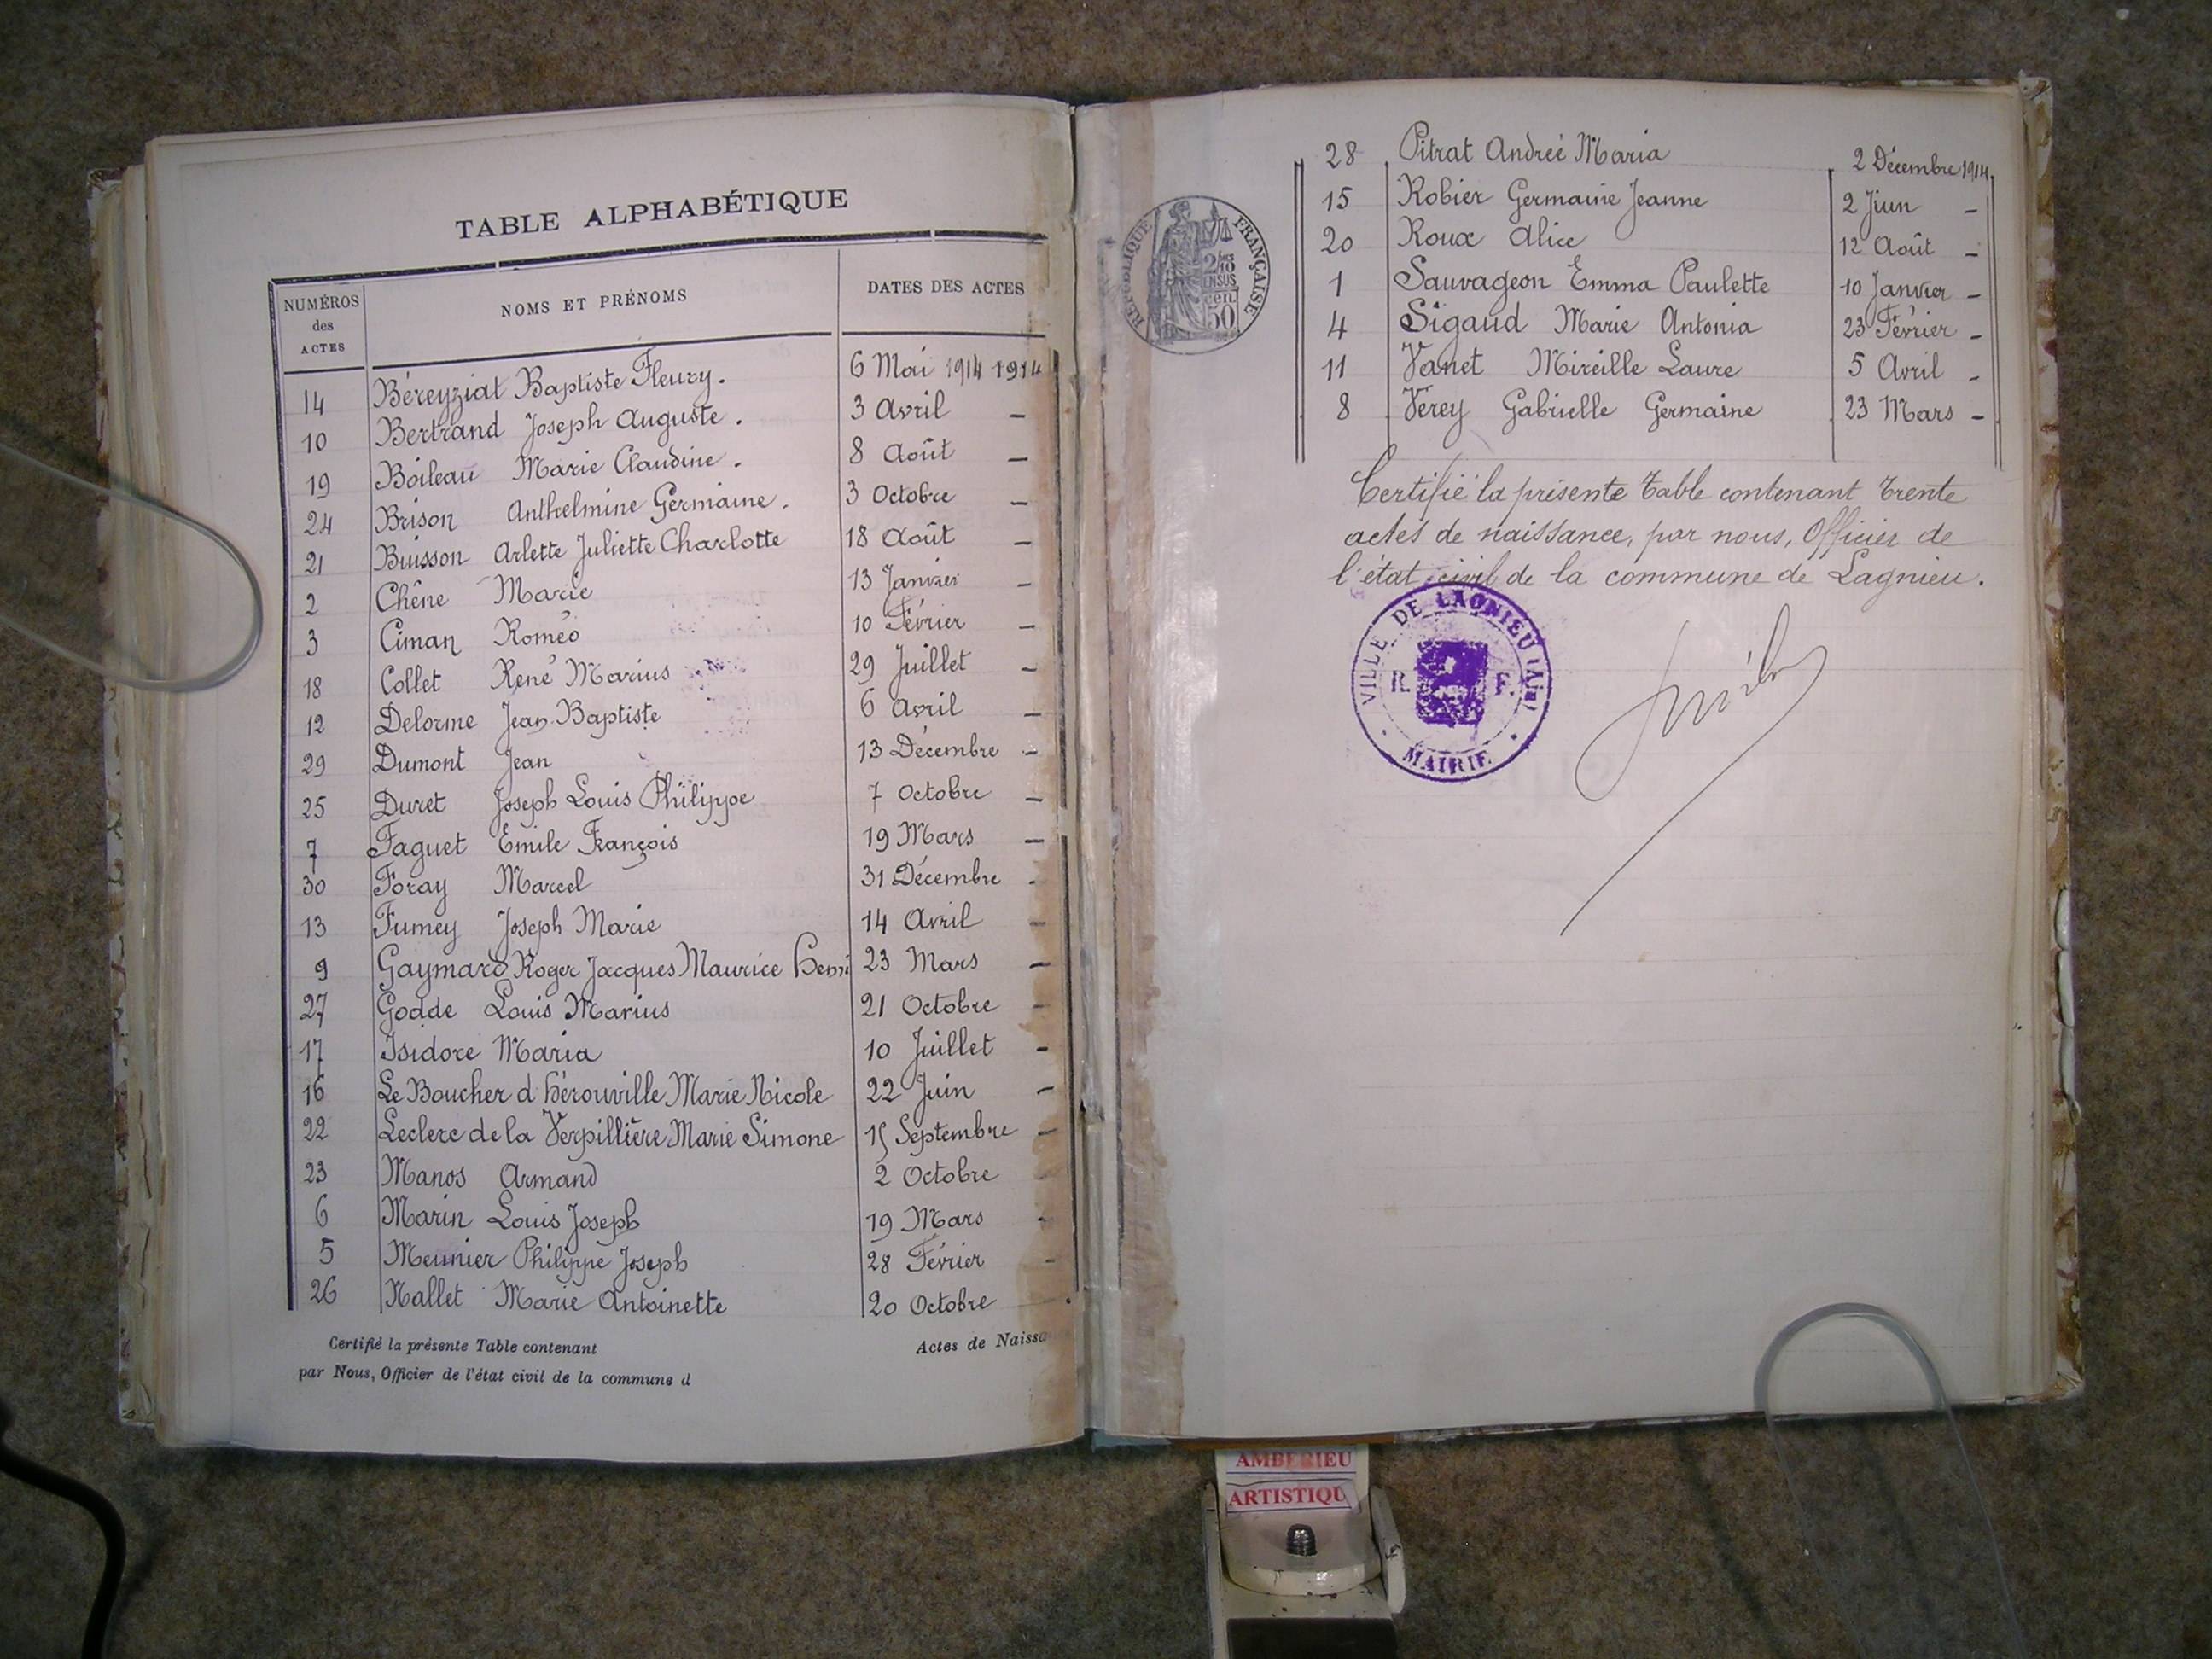 TABLE ALPHABÉTIQUE
NUMÉROS des ACTES NOMS ET PRÉNOMS DATES DES ACTES
14 Béreyziat Baptiste Fleury. 6 Mai 1914 1914
10 Bertrand Joseph Auguste. 3 Avril —
19 Boileau Marie Claudine. 8 Août —
24 Brison Anthelmine Germaine. 3 Octobre —
21 Buisson Arlette Juliette Charlotte 18 Août —
2 Chêne Marie 13 Janvier —
3 Ciman Roméo 10 Février —
18 Collet René Marius 29 Juillet —
12 Delorme Jean-Baptiste 6 Avril —
29 Dumont Jean 13 Décembre —
25 Duret Joseph Louis Philippe 7 Octobre —
7 Faguet Emile François 19 Mars —
30 Foray Marcel 31 Décembre -
13 Fumey Joseph Marie 14 Avril —
9 Gaymard Roger Jacques Maurice Henri 23 Mars —
27 Godde Louis Marius 21 Octobre —
17 Isidore Maria 10 Juillet -
16 Le Boucher d'hérouville Marie Nicole 22 Juin —
22 Leclerc de la Verpillière Marie Simone 15 Septembre —
23 Manos Armand 2 Octobre
6 Marin Louis Joseph 19 Mars -
5 Meunier Philippe Joseph 28 Février -
26 Nallet Marie Antoinette 20 Octobre
Certifié la présente Table contenant Actes de Naissa
par Nous, Officier de l'état civil de la commune d
28 Pitrat Andrée Maria 2 Décembre 1914
15 Robier Germaine Jeanne 2 Jiun —
20 Roux Alice 12 Août —
1 Sauvageon Emma Paulette 10 Janvier —
4 Sigaud Marie Antonia 23 Février —
11 Vanet Mireille Laure 5 Avril —
8 Verey Gabrielle Germaine 23 Mars —
RÉPUBLIQUE FRANÇAISE
2/10 EN SUS
50 cen
Certifié la présente table contenant trente
actes de naissance, par nous, Officier de
l'état civil de la commune de Lagnieu.
VILLE DE LAGNIEU (Ain)
R. F.
MAIRIE
AMBERIEU
ARTISTIQU